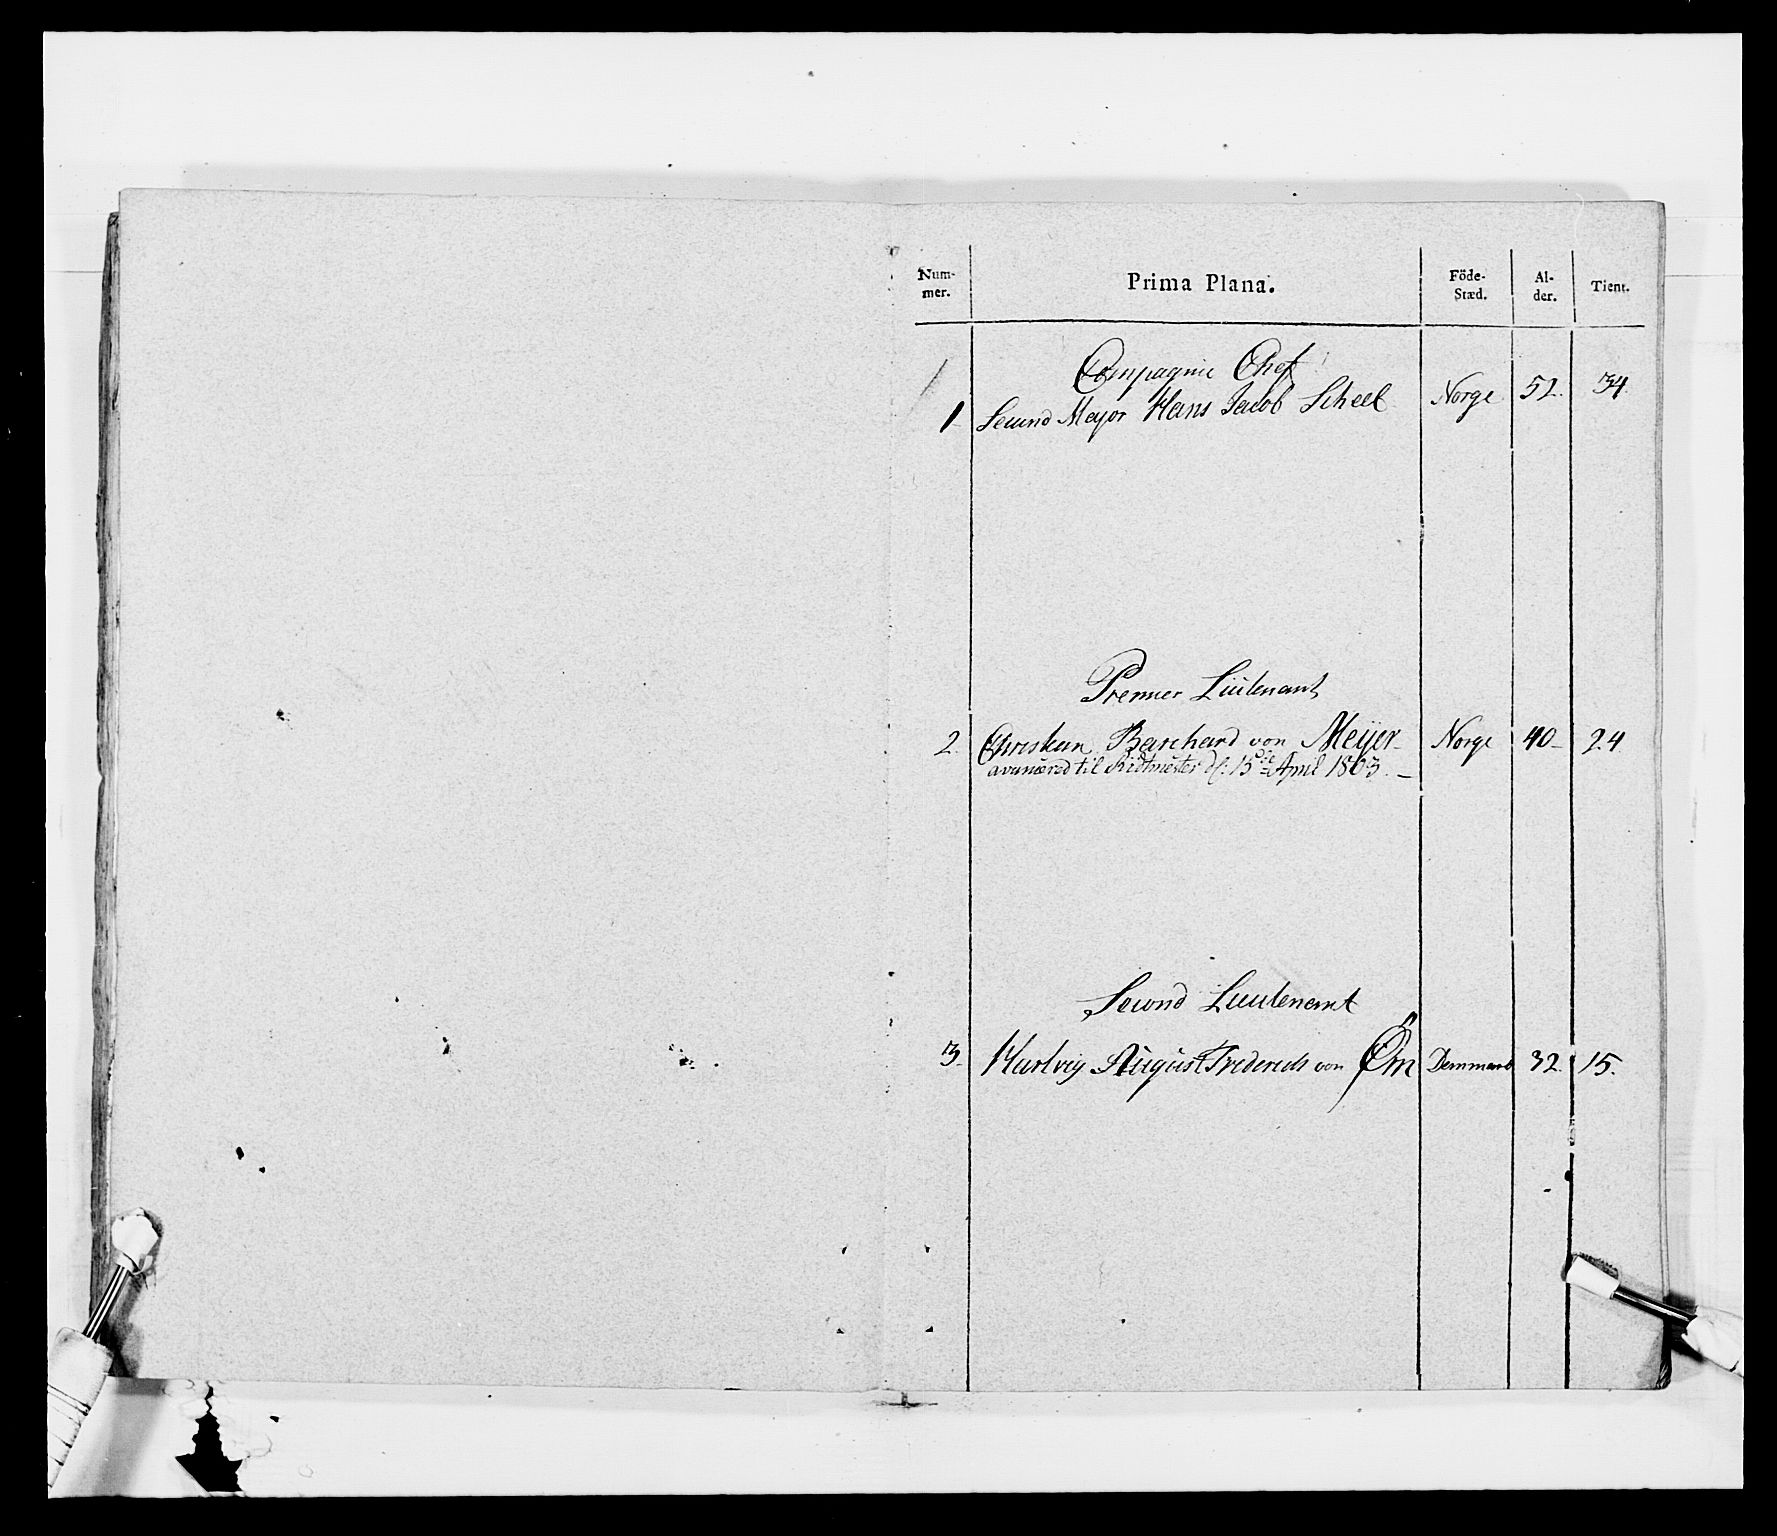 Num-mer. Prima Plana. Föde-Stæd. Al-der. Tient.
Compagnie Chef
1 Second Major Hans Jacob Scheel Norge 52. 34
Premier Lieutenant
2. Christian Barchard von Meÿer Norge 40 24
avancered til Ridtmester d: 15de April 1803.
Second Lieutenant
3. Hartvig August Friderich von Öm Danmark 32. 15.